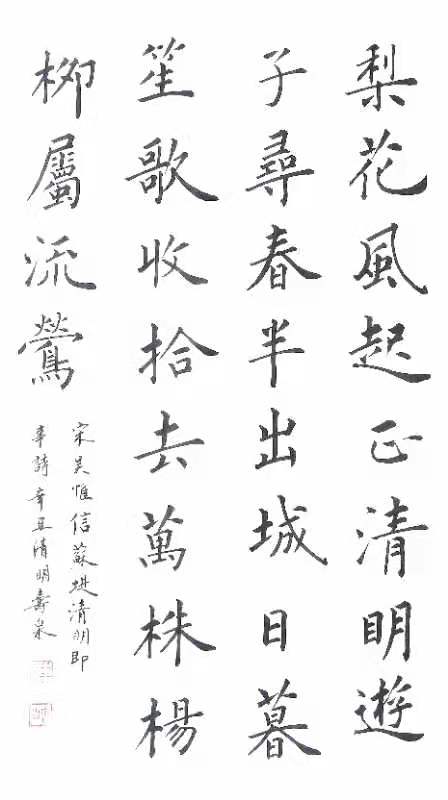 梨花風起正清明遊
子尋春半出城日暮
笙歌收拾去萬株楊
柳屬流鶯
宋吳惟信蘇堤清明即
事詩辛丑清明壽泉